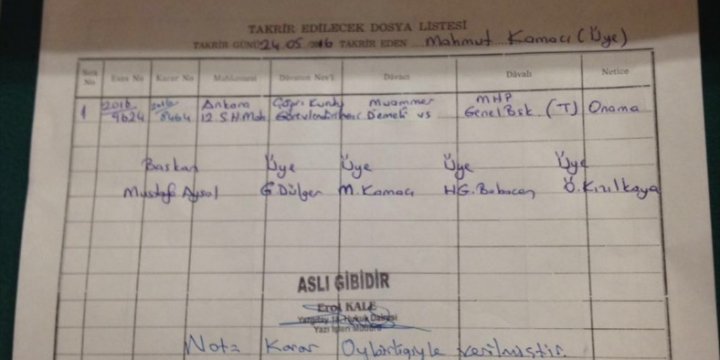 TAKRİR EDİLECEK DOSYA LİSTESİ
TAKRİR GÜNÜ 24.05.2016 TAKRİR EDEN Mahmut Kamacı (Üye)
Sıra No Esas No Karar No Mahkemesi Dâvanın Nev'i Dâvacı Dâvalı Netice
1 2016 2016 Ankara Çağrı Kurulu Muammer MHP
9624 8464 12.S.H.Mah Görevlendirilmesi Demeli vs Genel Bşk. (T) Onama
Başkan Üye Üye Üye Üye
Mustafa Aysal G Dülger M. Kamacı HG. Babacan Ö. Kızılkaya
ASLI GİBİDİR
Erol KALE
Yargıtay Hukuk Dairesi
Yazı İşleri Müdürü
Not: Karar Oybirliğiyle verilmiştir.